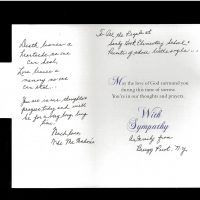 Death leaves a
heartache no one
can heal,
Love leaves a
memory no one
can steal...
You are in our thoughts &
prayers today and will
be for a long long
time.
Much love
To All the People at
Sandy Hook Elementary School &
Parents of those little angels...
May the love of God surround you
during this time of sorrow.
You're in our thoughts and prayers.
With
Sympathy
A Family from
N.Y.